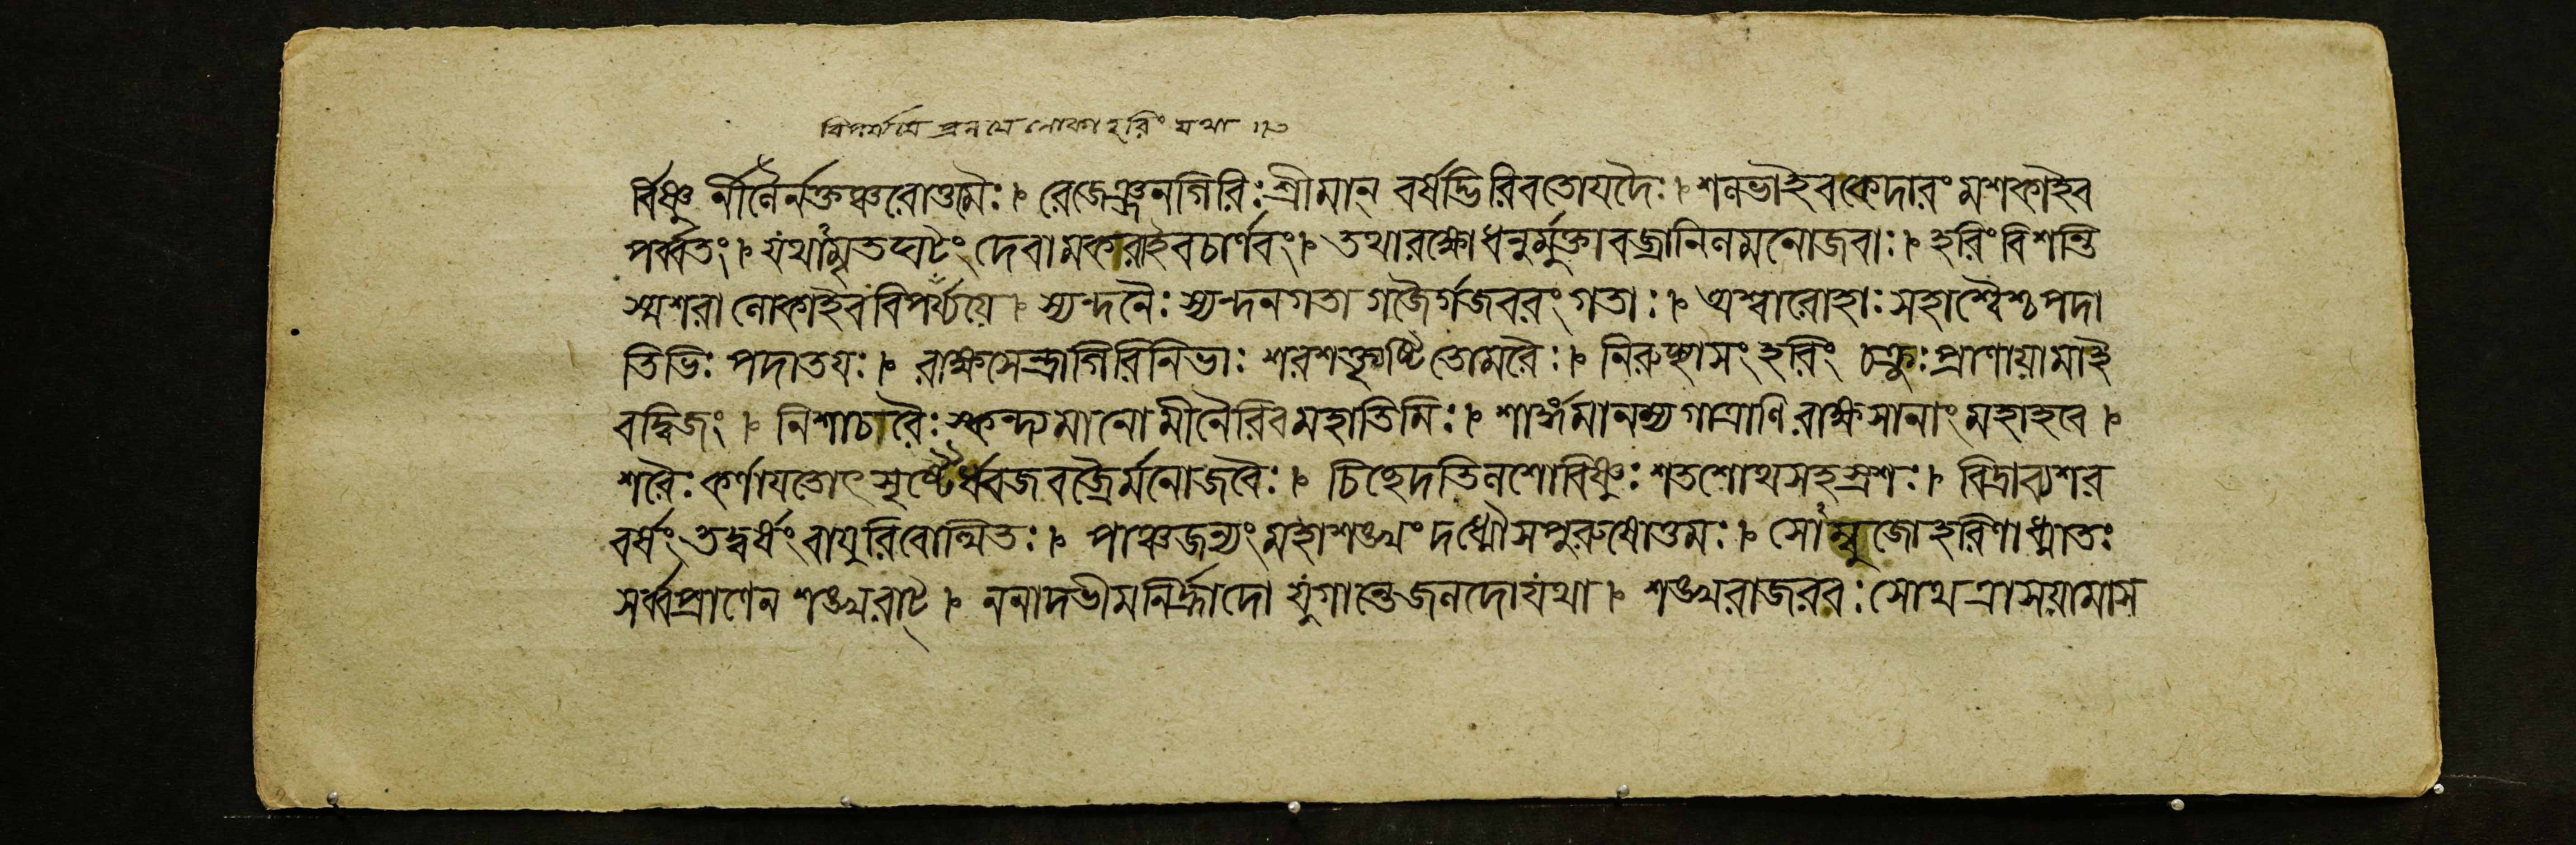 বিপর্য্যয়ে প্রলয়ে লোকা হরিং যথা ১৮৩
র্বিষ্ণু র্নীলৈর্নক্তঞ্চরোত্তমৈঃ। রেজেঞ্জনগিরিঃশ্রীমান্ বর্ষদ্ভিরিবতোযদৈঃ। শলভাইবকেদারং মশকাইব
পর্ব্বতং। যথামৃতঘটং দেবামকরাইবচার্ণবং। তথারক্ষোধনুর্মুক্তাবজ্রানিলমনোজবাঃ। হরিংবিশন্তি
স্মশরা লোকাইববিপর্য্যয়ে। স্যন্দনৈঃ স্যন্দনগতা গজৈর্গজবরং গতাঃ। অশ্বারোহাঃ সহাশ্বৈশ্চ পদা
তিভিঃ পদাতযঃ। রাক্ষসেন্দ্রাগিরিনিভাঃ শরশক্ত্যৃষ্টিতোমরৈঃ। নিরুচ্ছ্বাসং হরিং চক্রুঃ প্রাণায়ামাই
বদ্বিজং। নিশাচারৈঃ স্কন্দ্যমানো মীনৈরিবমহাতিমিঃ। শার্ঙ্গমানম্যগাত্রাণি রাক্ষসানাং মহাহবে।
শরৈঃ কর্ণাযতোৎসৃষ্টৈর্ধ্বজবজ্রৈর্মনোজবৈঃ। চিছেদতিলশোবিষ্ণুঃ শতশোথসহস্রশঃ। বিদ্রাব্যশর
বর্ষং তদ্বর্ষং বাযুরিবোত্থিতঃ। পাঞ্চজন্যং মহাশঙ্খং দধ্মৌসপুরুষোত্তমঃ। সোম্বুজোহরিণাধ্মাতঃ
সর্ব্বপ্রাণেন শঙ্খরাট্। ননাদভীমনির্হ্রাদো যুগান্তেজলদোযথা। শঙ্খরাজরবঃ সোথত্রাসয়ামাস